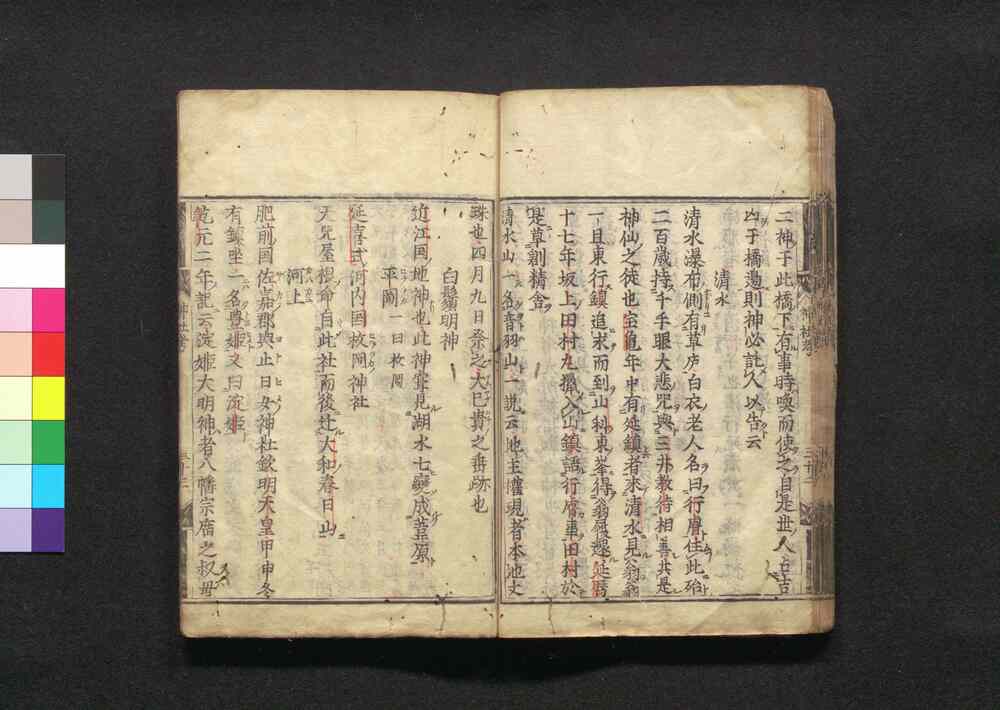 二神于此橋下有事時喚而使之自是世人占吉
凶于橋邊則神必託人以告云
清水
清水瀑布側有草庐白衣老人名曰行睿住此殆
二百歳持千手千眼大悲咒與三井教待相善共是
神仙之徒也宝亀年中有延鎮者來清水見翁翁
一旦東行鎮追求而到山科東峯得翁屐還延暦
十七年坂上田村丸獵入山鎮語行睿事田村於
是草創精舎
清水山一名音羽山一説云地主權現者本地文
殊也四月九日祭之大巳貴之垂跡也
白鬚明神
近江国地神也此神甞見湖水七變成葦原
平岡 一曰枚岡
延喜式河内国枚岡神社
天児屋根命自此社而後辻大和春日山
河上
肥前国佐嘉郡與止日女神社欽明天皇甲申冬
有鎮坐一名豊姫又曰淀姫
乾元二年記云淀姫大明神者八幡宗庿之叔母
神社考